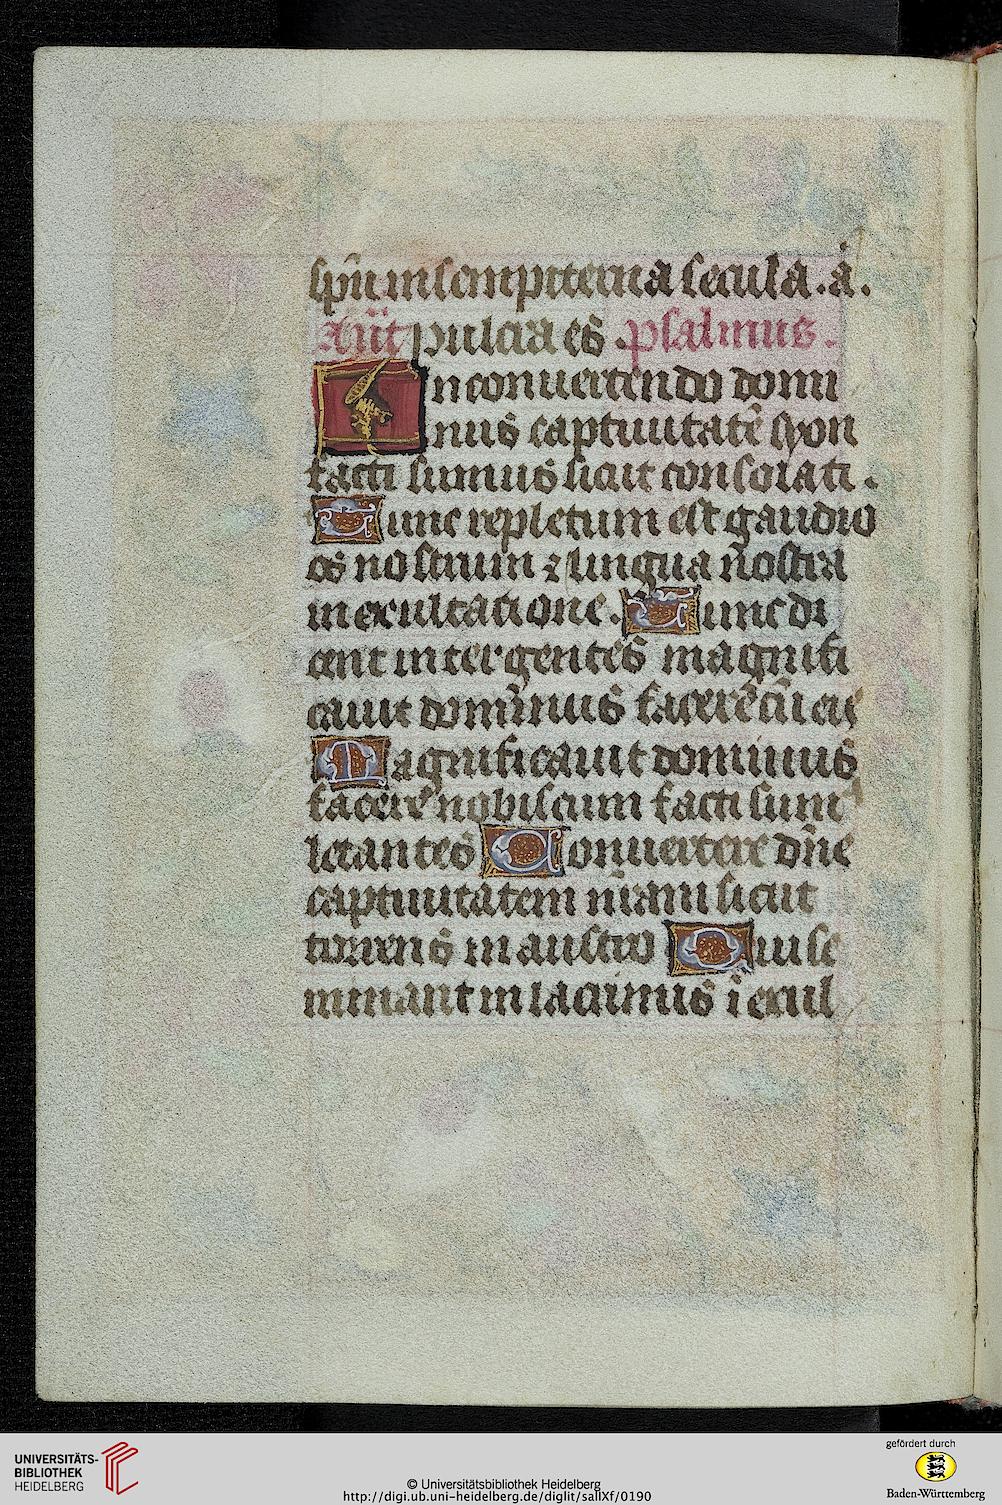 spū in sempiterna secula. a.
Añt pulcra es. psalmus.
In conuertendo domi
nus captiuitatē syon
facti sumus sicut consolati.
Tunc repletum est gaudio
os nostrum ⁊ lingua nostra
in exultatione. Tunc di
cent inter gentes magnifi
cauit dominus facere cū eis
Magnificauit dominus
facere nobiscum facti sum⁹
letantes Conuertere dñe
captiuitatem nr̄am sicut
torrens in austro Qui se
minant in lacrimis ī exul
UNIVERSITÄTS-
BIBLIOTHEK
HEIDELBERG
© Universitätsbibliothek Heidelberg
http://digi.ub.uni-heidelberg.de/diglit/salIXf/0190
gefördert durch
Baden-Württemberg